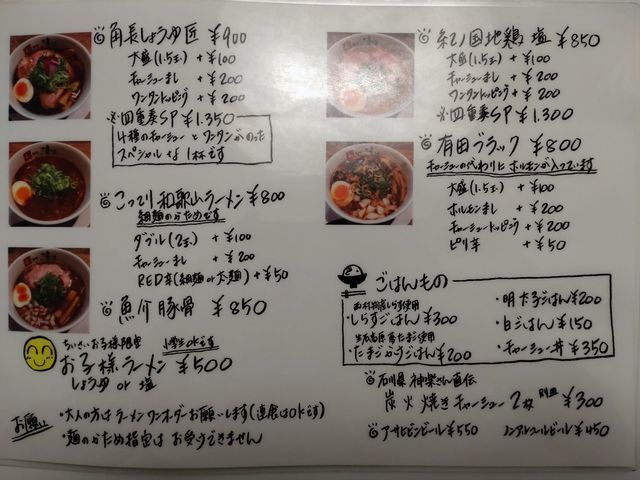 角長しょうゆ匠 ¥900
大盛(1.5玉) +¥100
チャーシューまし +¥200
ワンタントッピング +¥200
※四重奏SP ¥1,350
4種のチャーシューとワンタンがのった
スペシャルな1杯です
こってり和歌山ラーメン ¥800
細麺のかためです
ダブル(2玉) +¥100
チャーシューまし +¥200
RED辛(細麺or太麺) +¥50
魚介豚骨 ¥850
ちいさいお子様限定 小学生okです
お子様ラーメン ¥500
しょうゆ or 塩
お願い
・大人の方はラーメンワンオーダーお願いします(連食はOKです)
・麺のかため指定はお受けできません
紀ノ国地鶏 塩 ¥850
大盛(1.5玉) +¥100
チャーシューまし +¥200
ワンタントッピング +¥200
※四重奏SP ¥1,300
有田ブラック ¥800
チャーシューの代わりにホルモンが入っています
大盛(1.5玉) +¥100
ホルモンまし +¥200
チャーシュートッピング +¥200
ピリ辛 +¥50
ごはんもの
・しらすごはん ¥300
・たまごかけごはん ¥200
・明太子ごはん ¥200
・白ごはん ¥150
・チャーシュー丼 ¥350
石川県 神楽さん直伝
炭火焼きチャーシュー2枚 別皿 ¥300
アサヒビンビール ¥550 ノンアルコールビール ¥450